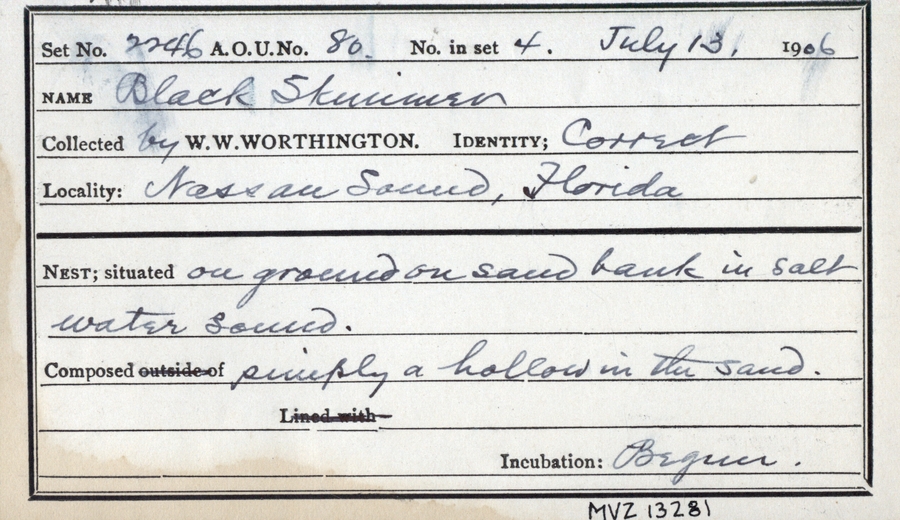 Set No. 2246 A.O.U.No. 80. No. in set 4. July 13, 1906
NAME Black Skimmer
Collected by W.W.WORTHINGTON. IDENTITY; Correct
Locality: Nassau Sound, Florida
NEST; situated on ground on sand bank in salt
water sound.
Composed outside of simply a hollow in the sand.
Lined with
Incubation: Begun.
MVZ 13281